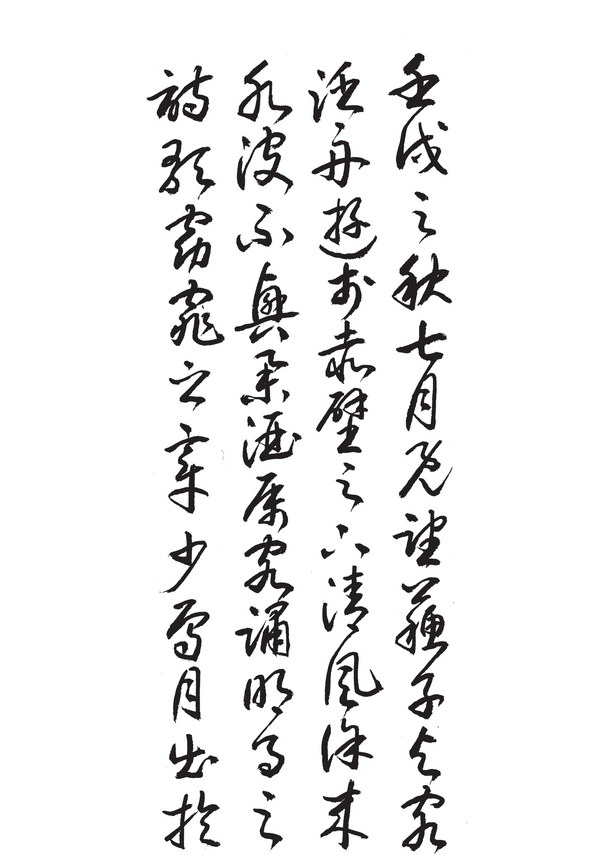 壬戌之秋七月既望蘇子与客
泛舟遊於赤壁之下清風徐来
水波不興舉酒属客誦明月之
詩歌窈窕之章少焉月出於